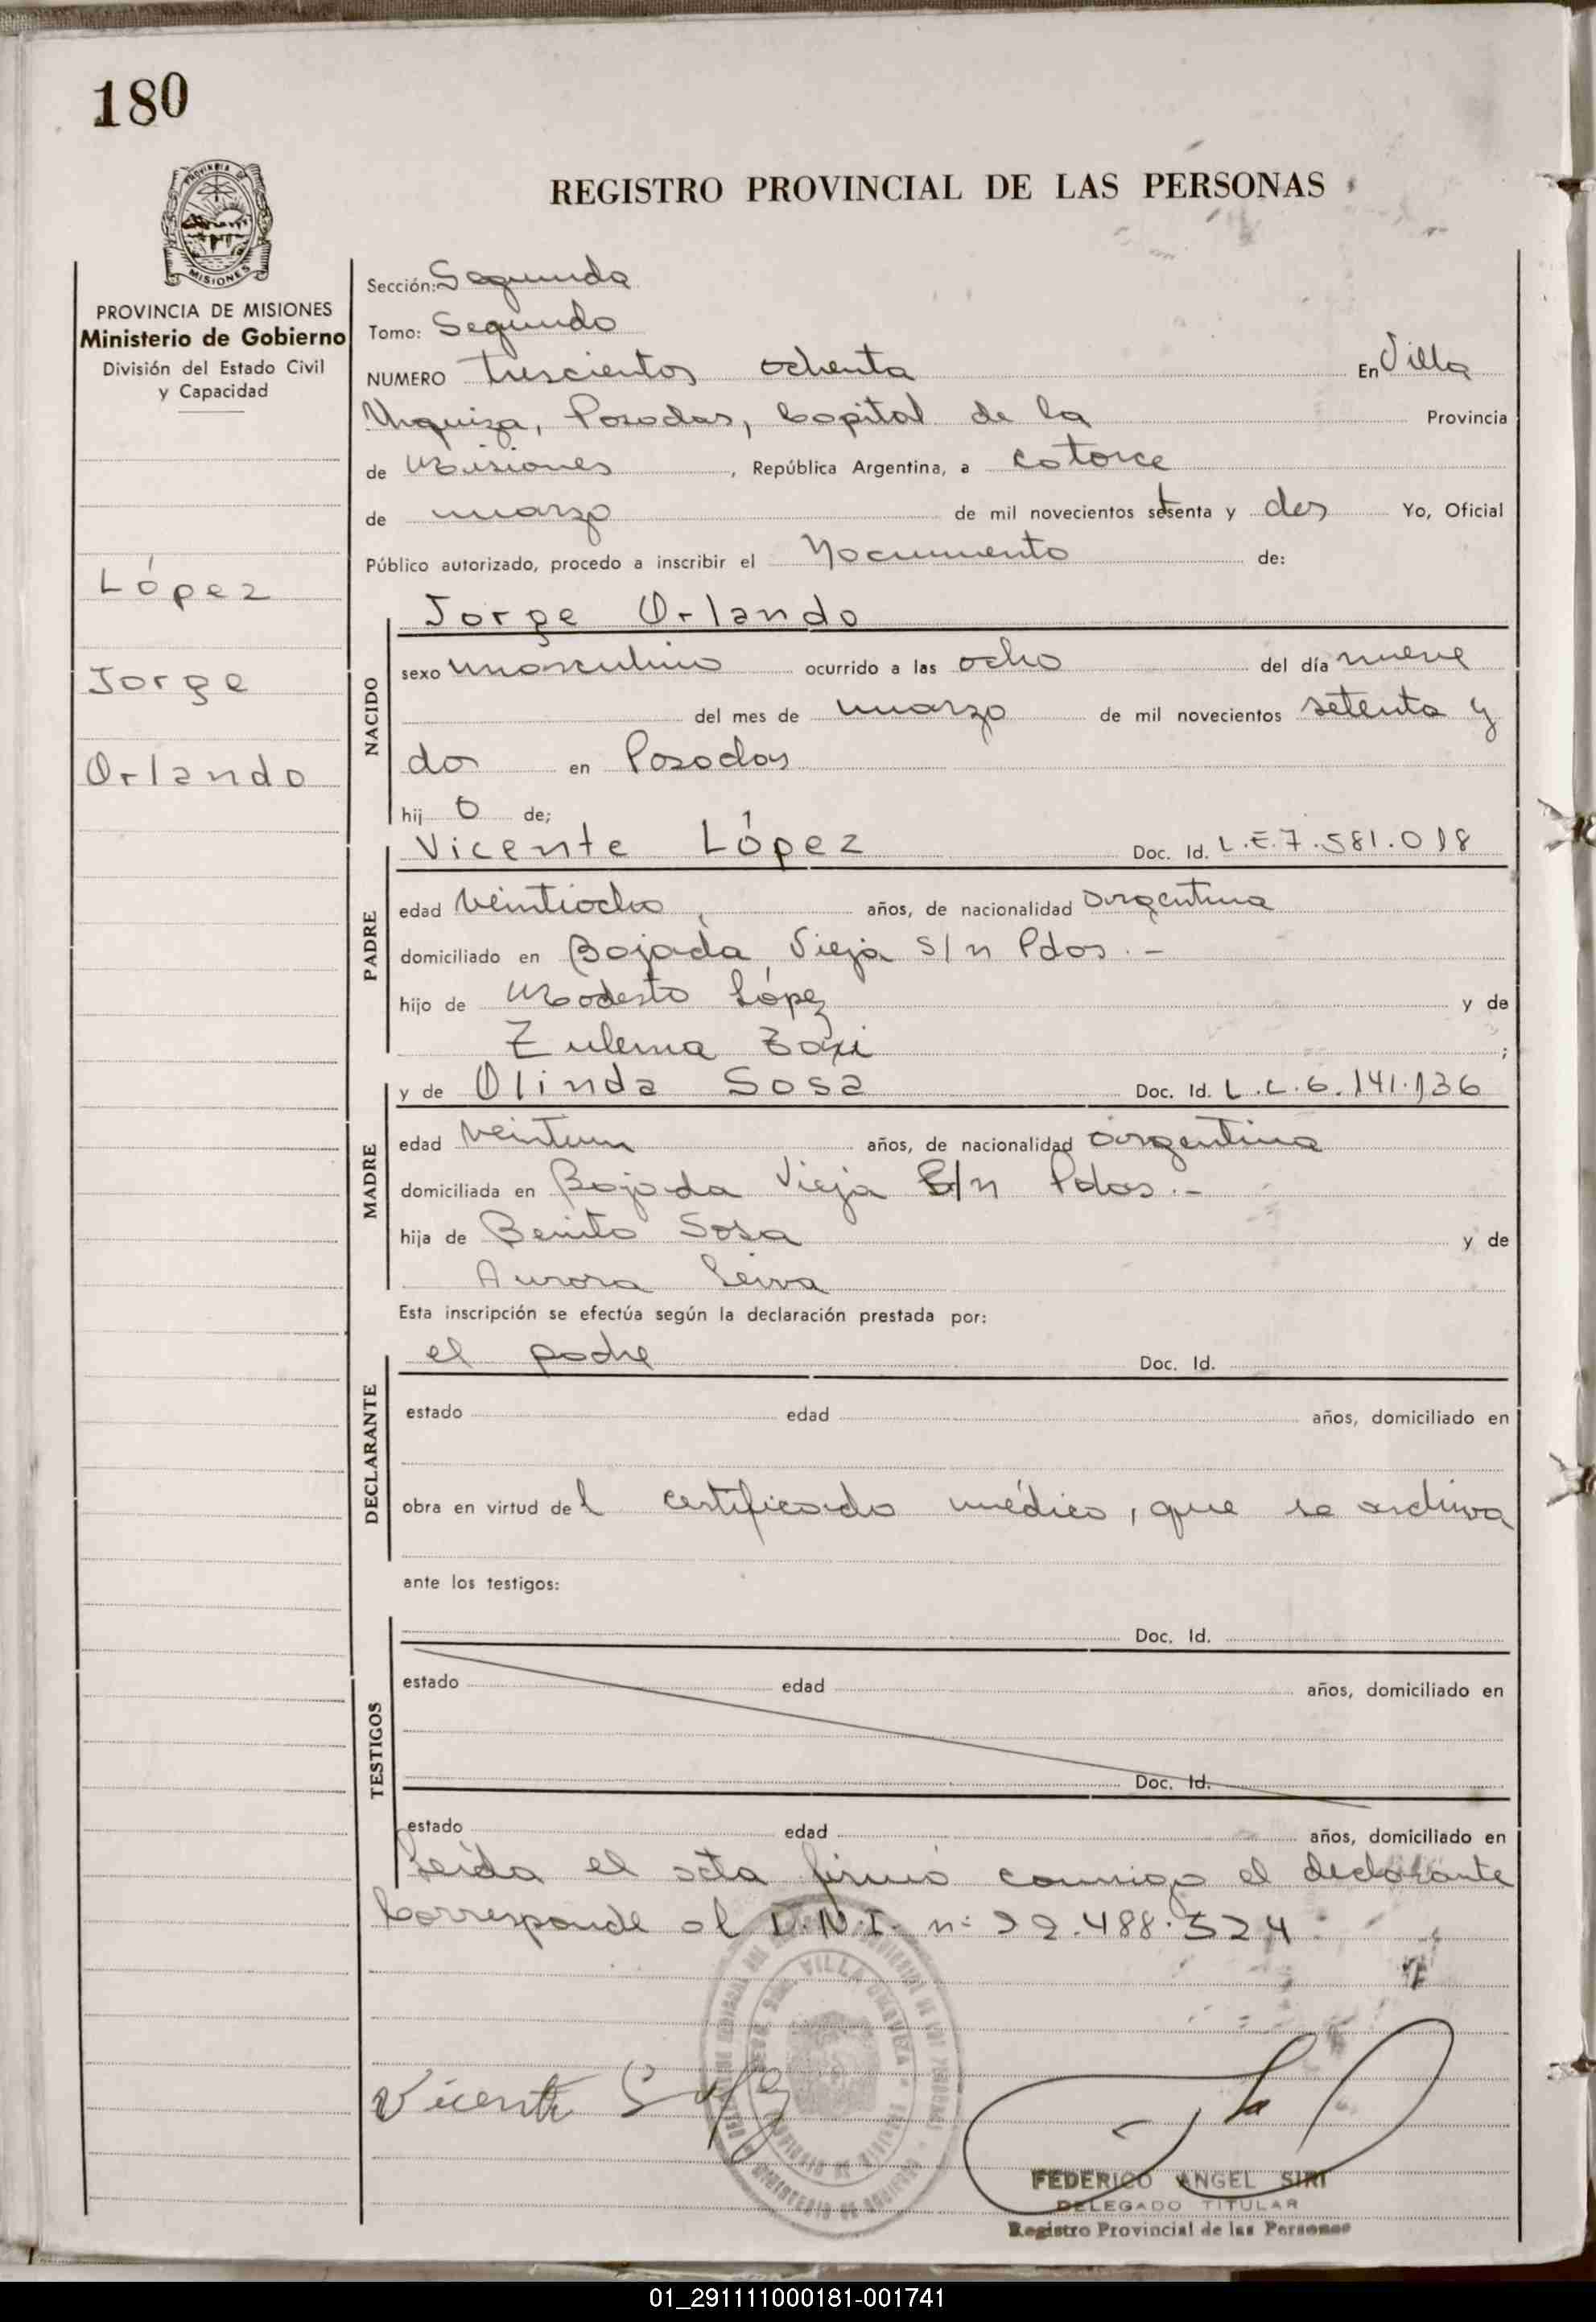 180
REGISTRO PROVINCIAL DE LAS PERSONAS
PROVINCIA DE
MISIONES
PROVINCIA DE MISIONES
Ministerio de Gobierno
División del Estado Civil
y Capacidad
López
Jorge
Orlando
Sección: Segunda
Tomo: Segundo
NUMERO trescientos ochenta En Villa
Urquiza, Posadas, Capital de la Provincia
de Misiones, República Argentina, a catorce
de marzo de mil novecientos setenta y dos Yo, Oficial
Público autorizado, procedo a inscribir el Nacimiento de:
NACIDO
Jorge Orlando
sexo masculino ocurrido a las ocho del día nueve
del mes de marzo de mil novecientos setenta y
dos en Posadas
hij o de;
PADRE
Vicente López Doc. Id. L.E.7.581.018
edad veintiocho, años, de nacionalidad argentina
domiciliado en Bajada Vieja S/n Pdas.-
hijo de Modesto López y de
Zulema ;
MADRE
y de Olinda Sosa Doc. Id. L.C.6.141.136
edad veintiun años, de nacionalidad argentina
domiciliada en Bajada Vieja S/n Pdas.-
hija de Benito Sosa y de
Aurora Leiva
Esta inscripción se efectúa según la declaración prestada por:
DECLARANTE
el padre Doc. Id.
estado edad años, domiciliado en
obra en virtud de l certificado médico, que se archiva
ante los testigos:
TESTIGOS
Doc. Id.
estado edad años, domiciliado en
Doc. Id.
estado edad años, domiciliado en
Leída el acta firmó conmigo el declarante
Corresponde al D.N.I. n: 22.488.524
VILLA URQUIZA
Vicente López
FEDERICO ANGEL SIRI
DELEGADO TITULAR
Registro Provincial de las Personas
01_291111000181-001741